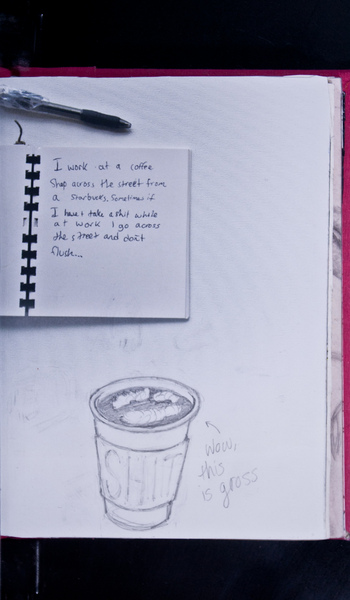 I work at a coffee
shop across the street from
a Starbucks. Sometimes if
I have t take a shit while
at work I go across
the street and don't
flush...
Wow,
this
is gross
SHIT